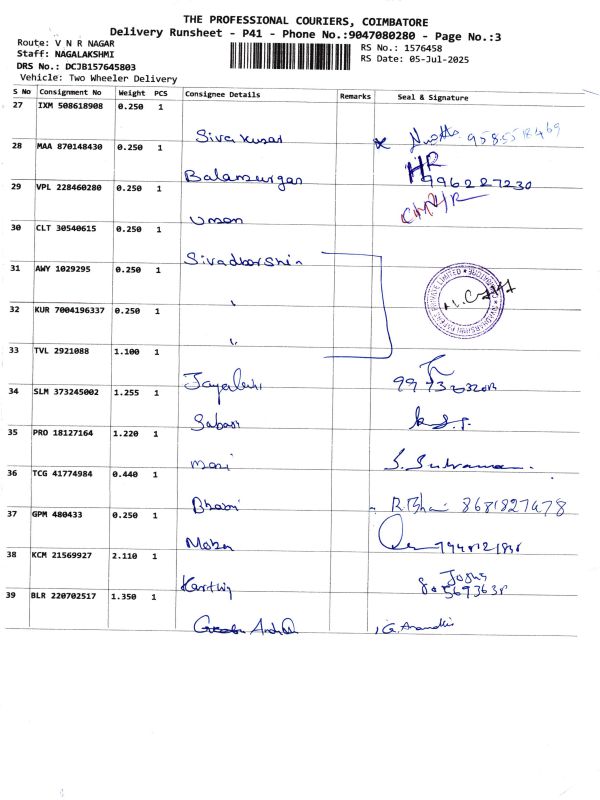 THE PROFESSIONAL COURIERS, COIMBATORE
Delivery Runsheet - P41 - Phone No.:9047080280 - Page No.:3
Route: V N R NAGAR
Staff: NAGALAKSHMI
RS No.: 1576458
DRS No.: DCJB157645803
RS Date: 05-Jul-2025
Vehicle: Two Wheeler Delivery
S No Consignment No Weight PCS Consignee Details Remarks Seal & Signature
27 IXM 508618908 0.250 1
Sivakusar 9585518469
28 MAA 870148430 0.250 1
HR
Balamurgan 996227230
29 VPL 228460280 0.250 1
Umon
30 CLT 30540615 0.250 1
Sivadharshin
31 AWY 1029295 0.250 1
PRIVATE LIMITED COIMBATORE
32 KUR 7004196337 0.250 1
33 TVL 2921088 1.100 1
34 SLM 373245002 1.255 1
Sabari
35 PRO 18127164 1.220 1
Mani
36 TCG 41774984 0.440 1
R. Bhai 8681827478
37 GPM 480433 0.250 1
38 KCM 21569927 2.110 1
39 BLR 220702517 1.350 1